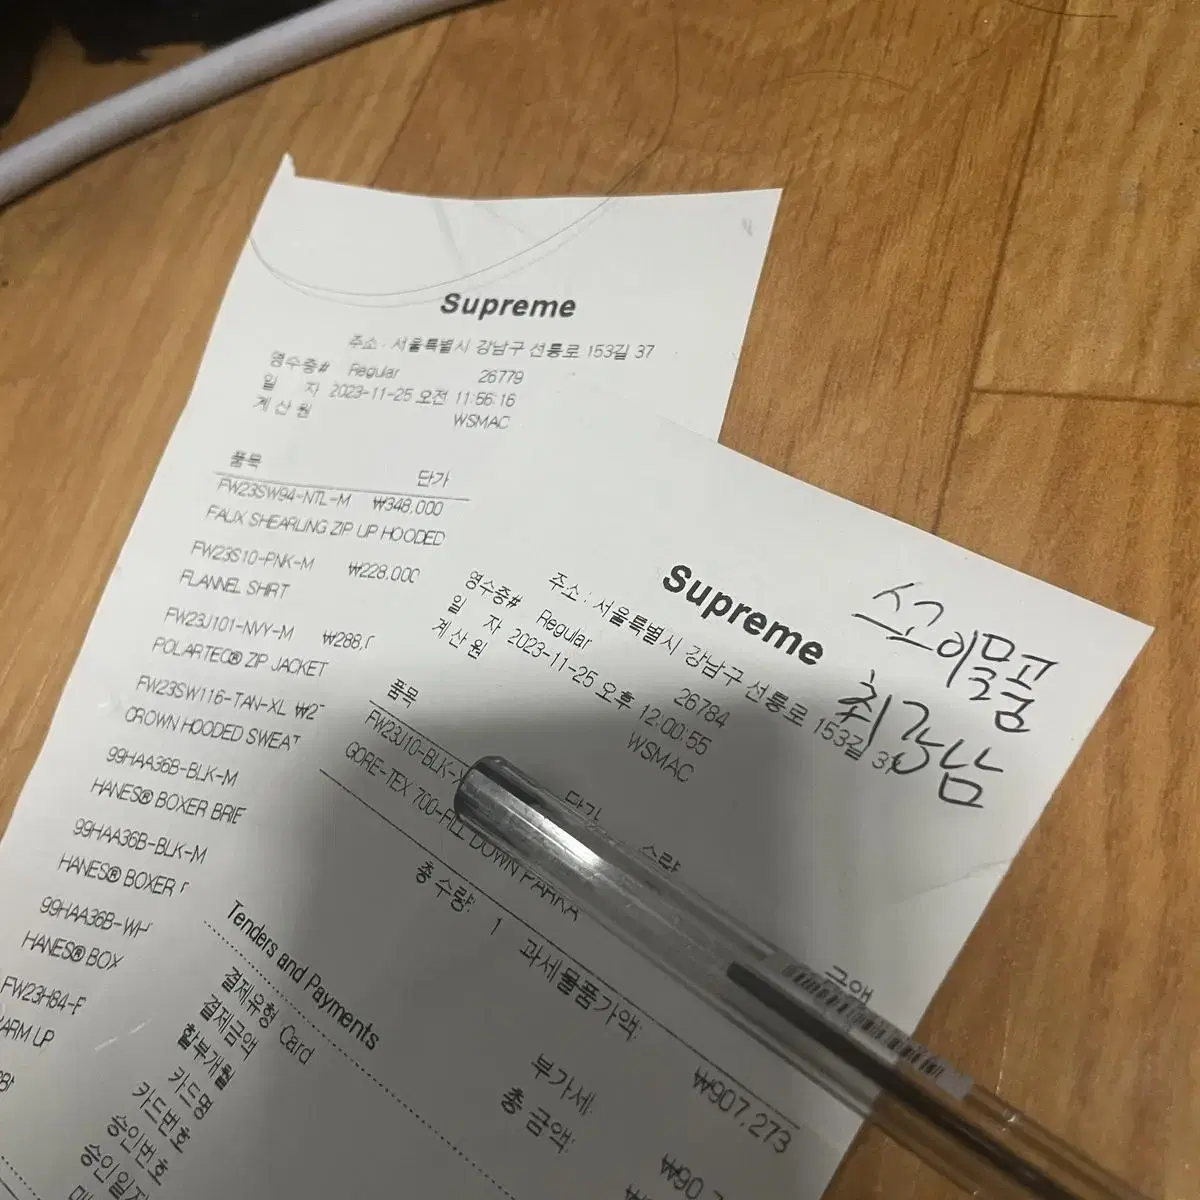 Supreme
주소 : 서울특별시 강남구 선릉로 153길 37
영수증# Regular 26779
일 자 2023-11-25 오전 11:56:16
계산원 WSMAC
품목 단가
FW23SW94-NTL-M ₩348,000
FAUX SHEARLING ZIP UP HOODED
FW23S10-PNK-M ₩228,000
FLANNEL SHIRT
FW23J101-NVY-M ₩288,
POLARTEC® ZIP JACKET
FW23SW116-TAN-XL ₩2
CROWN HOODED SWEAT
99HAA36B-BLK-M
HANES® BOXER BRIE
99HAA36B-BLK-M
HANES® BOXER
99HAA36B-WH
HANES® BOX
FW23H84-
ARM UP
Supreme
주소 : 서울특별시 강남구 선릉로 153길 37
영수증# Regular 26784
일 자 2023-11-25 오후 12:00:55
계산원 WSMAC
품목 단가 수량 금액
FW23J10-BLK-
GORE-TEX 700-FILL DOWN PARKA
총 수량: 1 과세물품가액: ₩907,273
부가세: ₩90,7
총 금액:
Tenders and Payments
결제유형 Card
결제금액
할부개월
카드명
카드번호
승인번호
승인일자
스고이물품
최강남